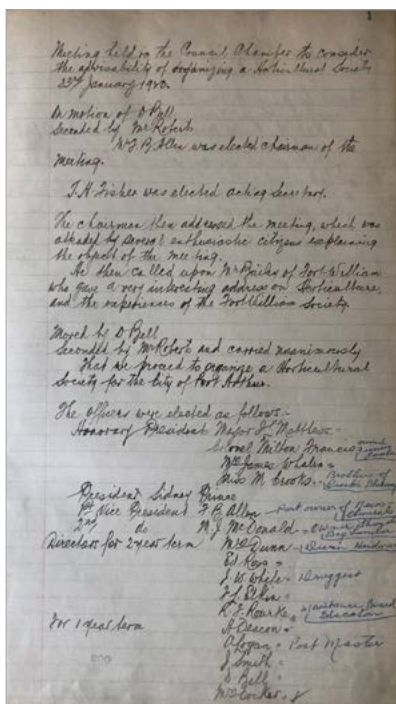 1
Meeting held in the Council Chamber to consider
the advisability of organizing a Horticultural Society
23rd January 1920.
On motion of D Bell
Seconded by Mr Roberts
Mr F. B. Allen was elected chairman of the
meeting.
T. H. Fisher was elected acting Secretary.
The chairman then addressed the meeting, which was
attended by several enthusiastic citizens explaining
the object of the meeting.
He then called upon Mr of Fort William
who gave a very interesting address on Horticulture,
and the experiences of the Fort William Society.
Moved by D Bell
Seconded by Mr Roberts and carried unanimously
That we proceed to organize a Horticultural
Society for the City of Port Arthur.
The officers were elected as follows:-
Honorary President Major Matthews
Colonel Milton Francis
Mrs James Whalen
Miss M Crooks - Brother of
President Sidney Prince
1st Vice President F. B. Allen - Part owner of News
2nd do M. J. McDonald -
Directors for 2 year term Dunn -
Ed Rose
J. W. White - Druggist
F. L. Elkin
R. F. Rourke - Board
Education
For 1 year term A Deacon
Logan - Post Master
J. Smith
D Bell
Cocker